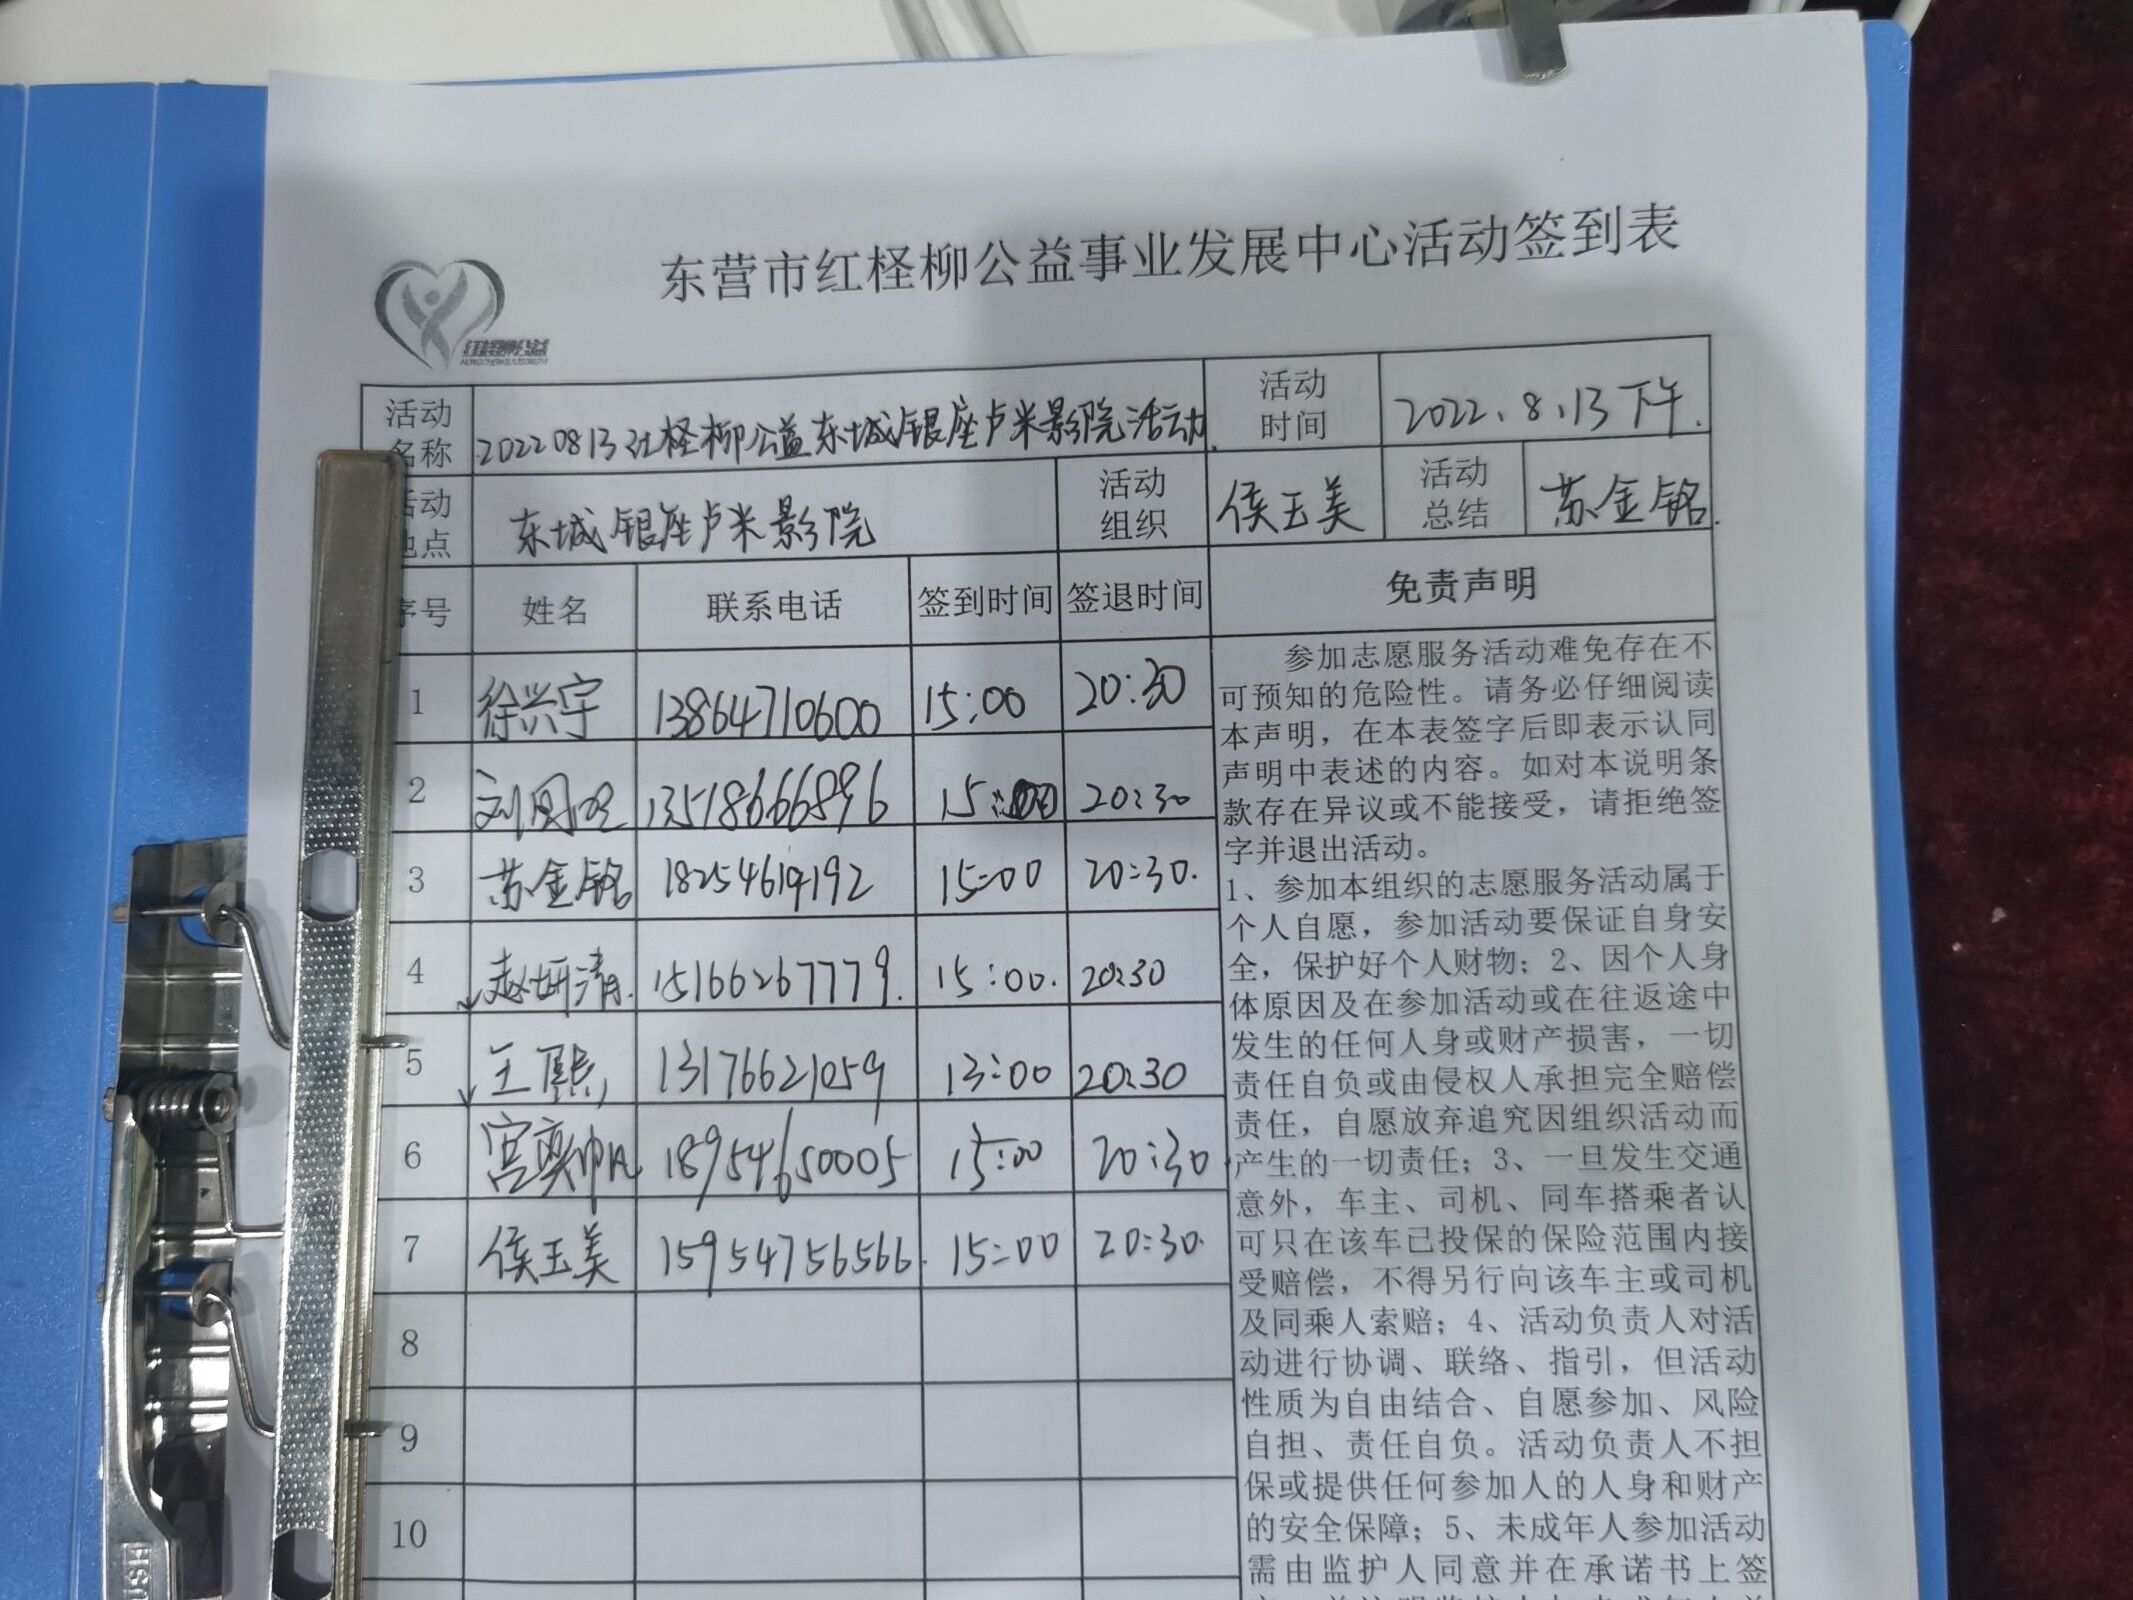 东营市红柽柳公益事业发展中心活动签到表
红柽柳公益
活动名称 20220813红柽柳公益东城银座卢米影院活动. 活动时间 2022.8.13下午.
活动地点 东城银座卢米影院 活动组织 侯玉美 活动总结 苏金铭.
序号 姓名 联系电话 签到时间 签退时间 免责声明
1 徐兴宇 13864710600 15:00 20:30
2 刘国 13518666896 15:00 20:30
3 苏金铭 18254619192 15:00 20:30.
4 赵妍清. 15166267779. 15:00. 20:30
5 王熙 13176621059 13:00 20:30
6 宫奕帆 18954650005 15:00 20:30.
7 侯玉美 15954756566. 15:00 20:30.
8
9
10
参加志愿服务活动难免存在不
可预知的危险性。请务必仔细阅读
本声明，在本表签字后即表示认同
声明中表述的内容。如对本说明条
款存在异议或不能接受，请拒绝签
字并退出活动。
1、参加本组织的志愿服务活动属于
个人自愿，参加活动要保证自身安
全，保护好个人财物；2、因个人身
体原因及在参加活动或在往返途中
发生的任何人身或财产损害，一切
责任自负或由侵权人承担完全赔偿
责任，自愿放弃追究因组织活动而
产生的一切责任；3、一旦发生交通
意外，车主、司机、同车搭乘者认
可只在该车已投保的保险范围内接
受赔偿，不得另行向该车主或司机
及同乘人索赔；4、活动负责人对活
动进行协调、联络、指引，但活动
性质为自由结合、自愿参加、风险
自担、责任自负。活动负责人不担
保或提供任何参加人的人身和财产
的安全保障；5、未成年人参加活动
需由监护人同意并在承诺书上签